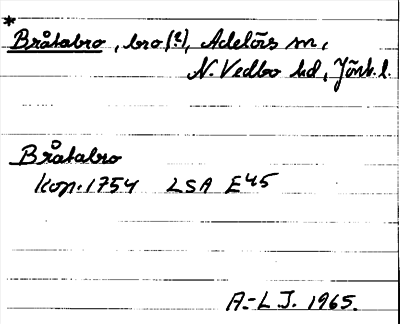 *
Bråtabro, bro(?), Adelövs sn,
N. Vedbo hd, Jönk. l.
Bråtabro
kop. 1754 LSA E45
A.-L J. 1965.